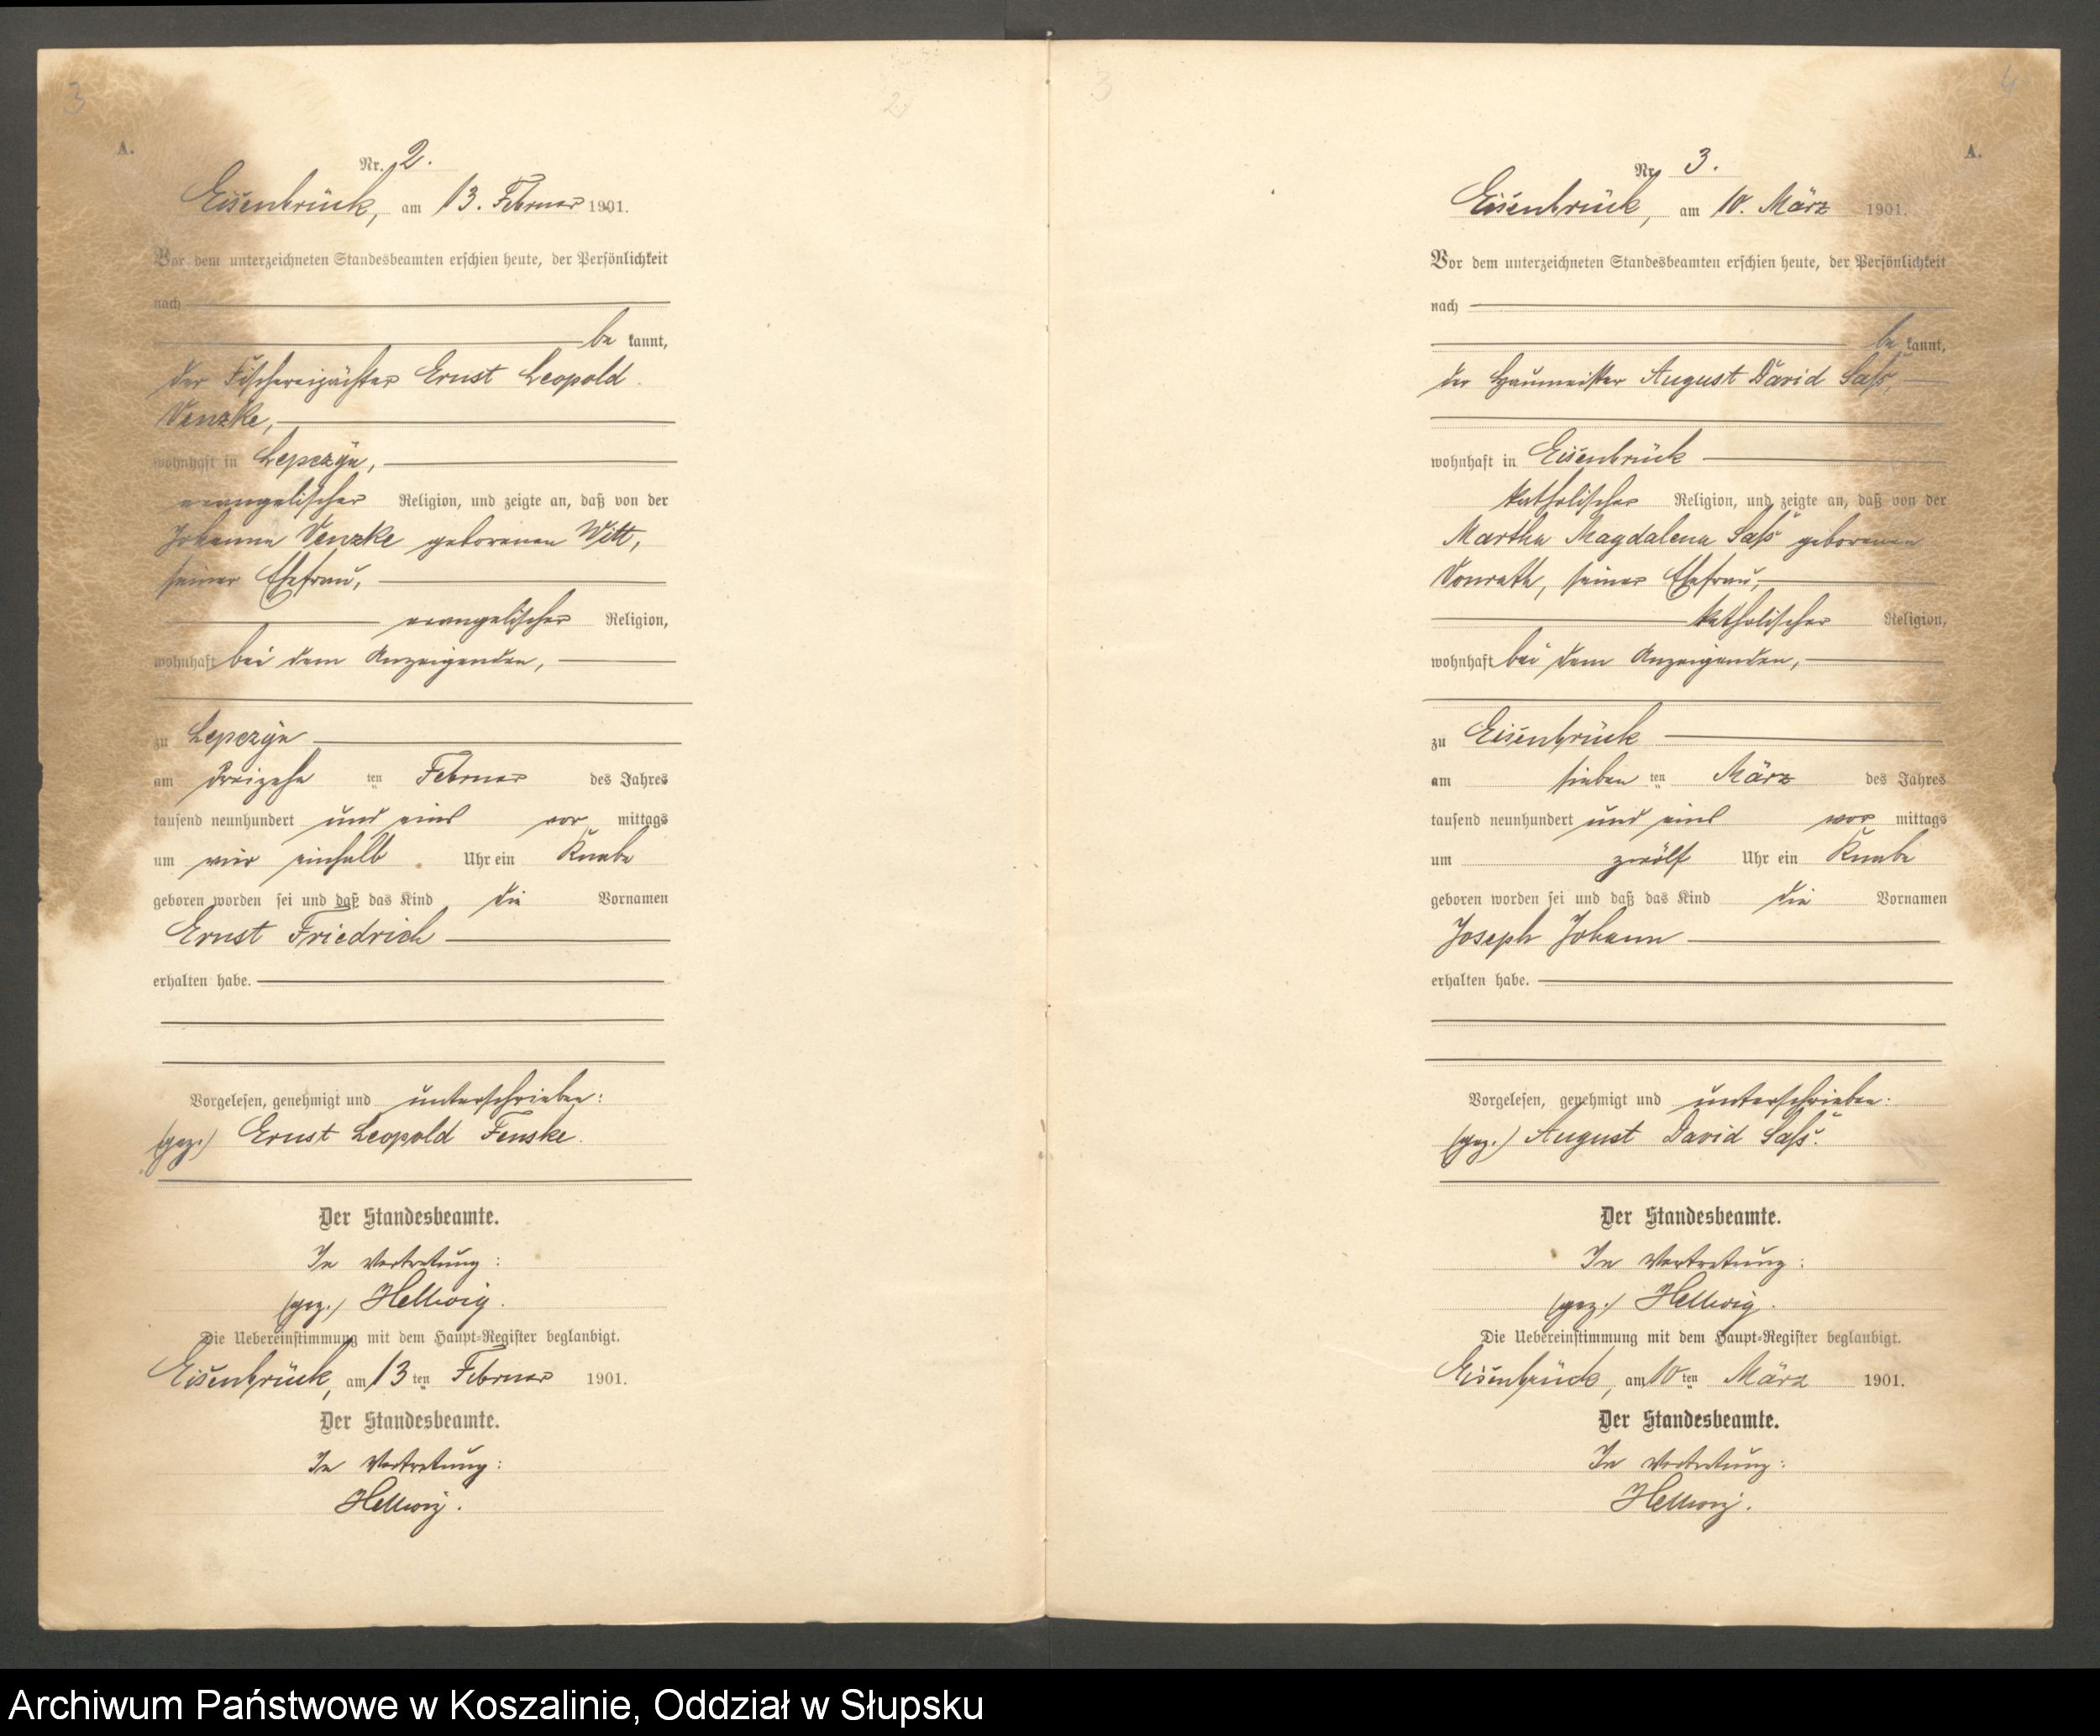 3
2.
A.
Nr. 2.
Eisenbrück, am 13. Februar 1901.
Vor dem unterzeichneten Standesbeamten erschien heute, der Persönlichkeit
nach
be kannt,
der Fischereipächter Ernst Leopold
Venzke,
wohnhaft in Lepczyn,
evangelischer Religion, und zeigte an, daß von der
Johanna Venzke geborenen Witt,
seiner Ehefrau,
evangelischer Religion,
wohnhaft bei dem Anzeigenden,
zu Lepczyn
am dreizehn ten Februar des Jahres
tausend neunhundert und eins vor mittags
um vier einhalb Uhr ein Knabe
geboren worden sei und daß das Kind die Vornamen
Ernst Friedrich
erhalten habe.
Vorgelesen, genehmigt und unterschrieben:
(gez.) Ernst Leopold Fenske.
Der Standesbeamte.
In Vertretung:
(gez.) Hellwig.
Die Uebereinstimmung mit dem Haupt-Register beglaubigt.
Eisenbrück, am 13 ten Februar 1901.
Der Standesbeamte.
In Vertretung:
Hellwig.
3
4
A.
Nr. 3.
Eisenbrück, am 10. März 1901.
Vor dem unterzeichneten Standesbeamten erschien heute, der Persönlichkeit
nach
be kannt,
der Haumeister August David Saß,
wohnhaft in Eisenbrück
katholischer Religion, und zeigte an, daß von der
Martha Magdalena Saß geborenen
Vonrath, seiner Ehefrau,
katholischer Religion,
wohnhaft bei dem Anzeigenden,
zu Eisenbrück
am sieben ten März des Jahres
tausend neunhundert und eins vor mittags
um zwölf Uhr ein Knabe
geboren worden sei und daß das Kind die Vornamen
Joseph Johann
erhalten habe.
Vorgelesen, genehmigt und unterschrieben:
(gez.) August David Saß.
Der Standesbeamte.
In Vertretung:
(gez.) Hellwig.
Die Uebereinstimmung mit dem Haupt-Register beglaubigt.
Eisenbrück, am 10 ten März 1901.
Der Standesbeamte.
In Vertretung:
Hellwig.
Archiwum Państwowe w Koszalinie, Oddział w Słupsku